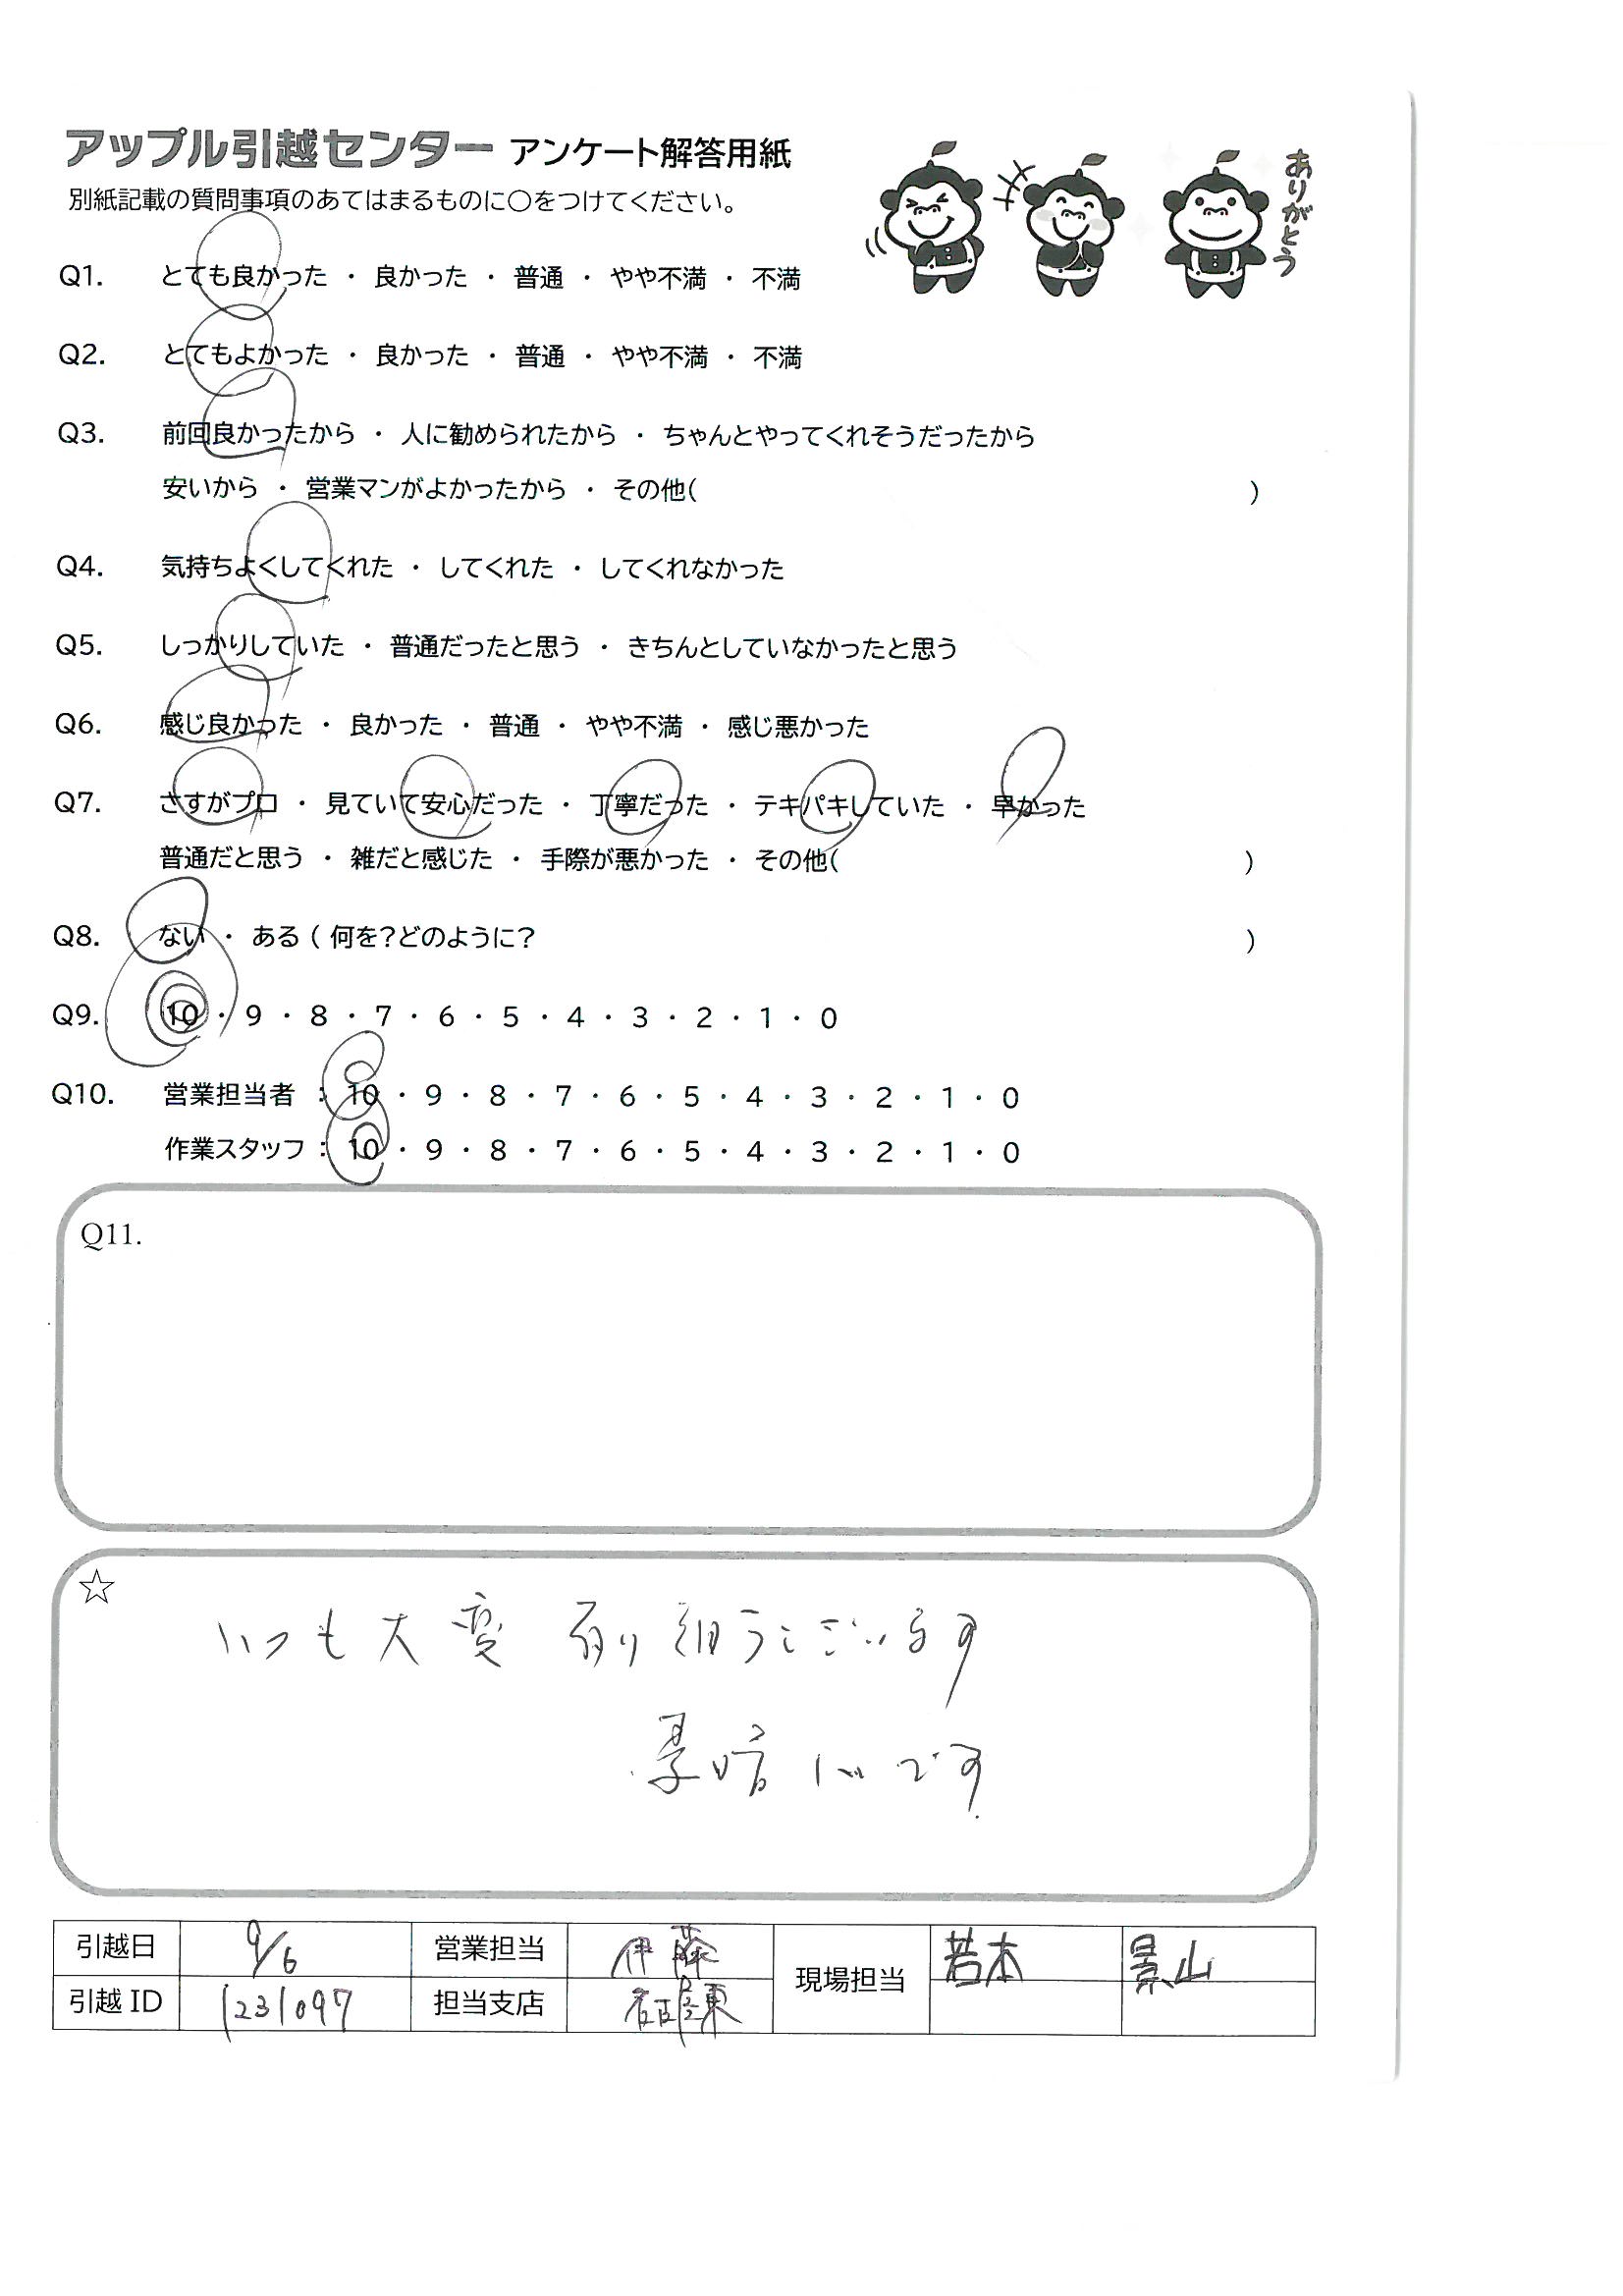 アップル引越センター アンケート解答用紙
別紙記載の質問事項のあてはまるものに〇をつけてください。
ありがとう
Q1. とても良かった ・ 良かった ・ 普通 ・ やや不満 ・ 不満
Q2. とてもよかった ・ 良かった ・ 普通 ・ やや不満 ・ 不満
Q3. 前回良かったから ・ 人に勧められたから ・ ちゃんとやってくれそうだったから
安いから ・ 営業マンがよかったから ・ その他( )
Q4. 気持ちよくしてくれた ・ してくれた ・ してくれなかった
Q5. しっかりしていた ・ 普通だったと思う ・ きちんとしていなかったと思う
Q6. 感じ良かった ・ 良かった ・ 普通 ・ やや不満 ・ 感じ悪かった
Q7. さすがプロ ・ 見ていて安心だった ・ 丁寧だった ・ テキパキしていた ・ 早かった
普通だと思う ・ 雑だと感じた ・ 手際が悪かった ・ その他( )
Q8. ない ・ ある ( 何を?どのように? )
Q9. 10 ・ 9 ・ 8 ・ 7 ・ 6 ・ 5 ・ 4 ・ 3 ・ 2 ・ 1 ・ 0
Q10. 営業担当者 : 10 ・ 9 ・ 8 ・ 7 ・ 6 ・ 5 ・ 4 ・ 3 ・ 2 ・ 1 ・ 0
作業スタッフ : 10 ・ 9 ・ 8 ・ 7 ・ 6 ・ 5 ・ 4 ・ 3 ・ 2 ・ 1 ・ 0
Q11.
☆
いつも大変有り難うございます
です
引越日 9/6 営業担当 伊藤 現場担当 若本 景山
引越 ID 1231097 担当支店 東